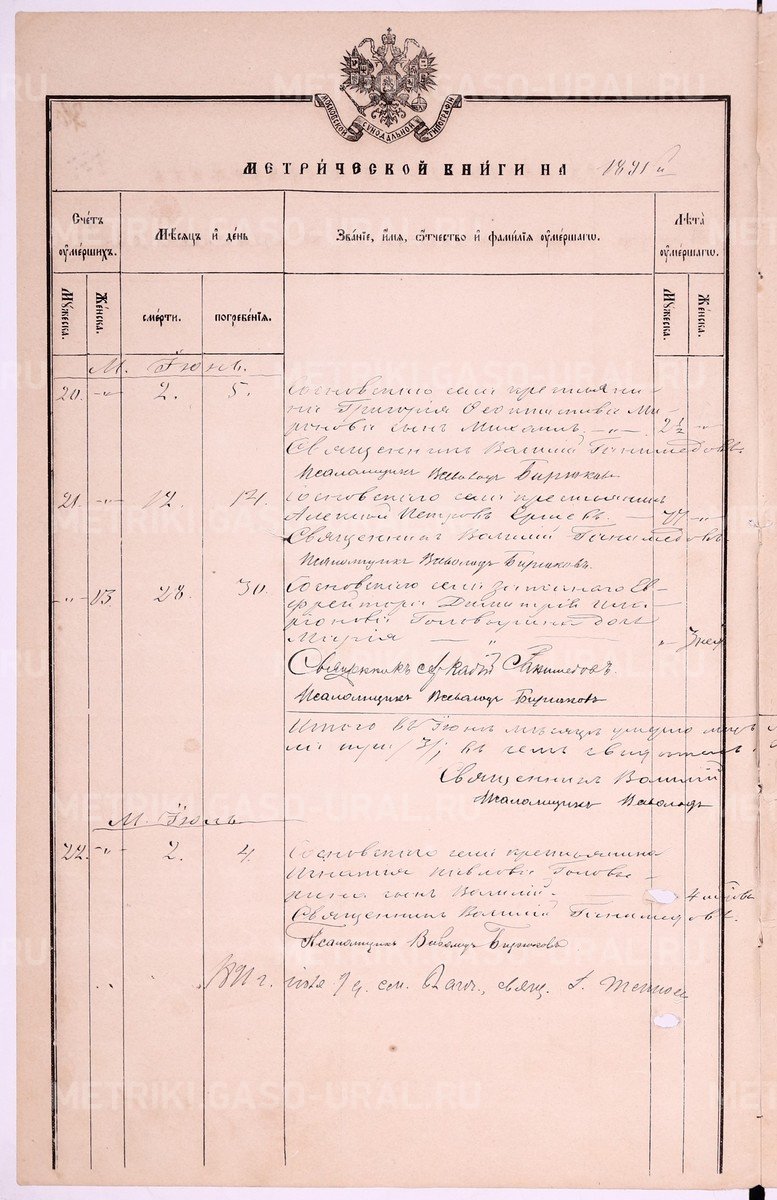 МОСКОВСКОЙ СѴНОДАЛЬНОЙ ТИПОГРАФІИ
МЕТРИ́ЧЕСКОЙ КНИ́ГИ НА 1891й
Сче́тъ ᲂу҆ме́ршихъ.
Мѣ́сѧцъ и҆ де́нь
Зва́нїе, и҆́мѧ, ѻ҆́тчество и҆ фами́лїѧ ᲂу҆ме́ршагѡ.
Лѣ́та ᲂу҆ме́ршагѡ.
Мꙋ́жеска.
Же́нска.
сме́рти.
погребе́нїѧ.
Мꙋ́жеска.
Же́нска.
М. Іюнь.
20. -"- 2. 5. Сосновскаго села крестьяни-
на Григорія Ми-
ронова сынъ Михаилъ. -"- 2½ -"-
Священникъ Василій Ганимедовъ
Псаломщикъ Всеволодъ Бирюковъ
21. -"- 12. 14. Сосновскаго села крестьянинъ
Алексѣй Петровъ 77 -"-
Священникъ Василій Ганимедовъ.
Псаломщикъ Всеволодъ Бирюковъ.
-"- 13. 28. 30. Сосновскаго села запаснаго Еф-
рейтора Димитрія Ила-
ріонова дочь
Марія -"- " 3 дней
Священникъ Аркадій Ганимедовъ.
Псаломщикъ Всеволодъ Бирюковъ
Итого въ Іюнѣ мѣсяцѣ умерло
/3/; въ чемъ
Священникъ Василій
Псаломщикъ Всеволодъ
М. Іюль
22. -"- 2. 4. Сосновскаго села крестьянина
Игнатія Головы-
рина сынъ Василій. 4 мѣсяца
Священникъ Василій Ганимедовъ.
Псаломщикъ Всеволодъ Бирюковъ.
1891 г. свящ. І.
METRIKI.GASO-URAL.RU